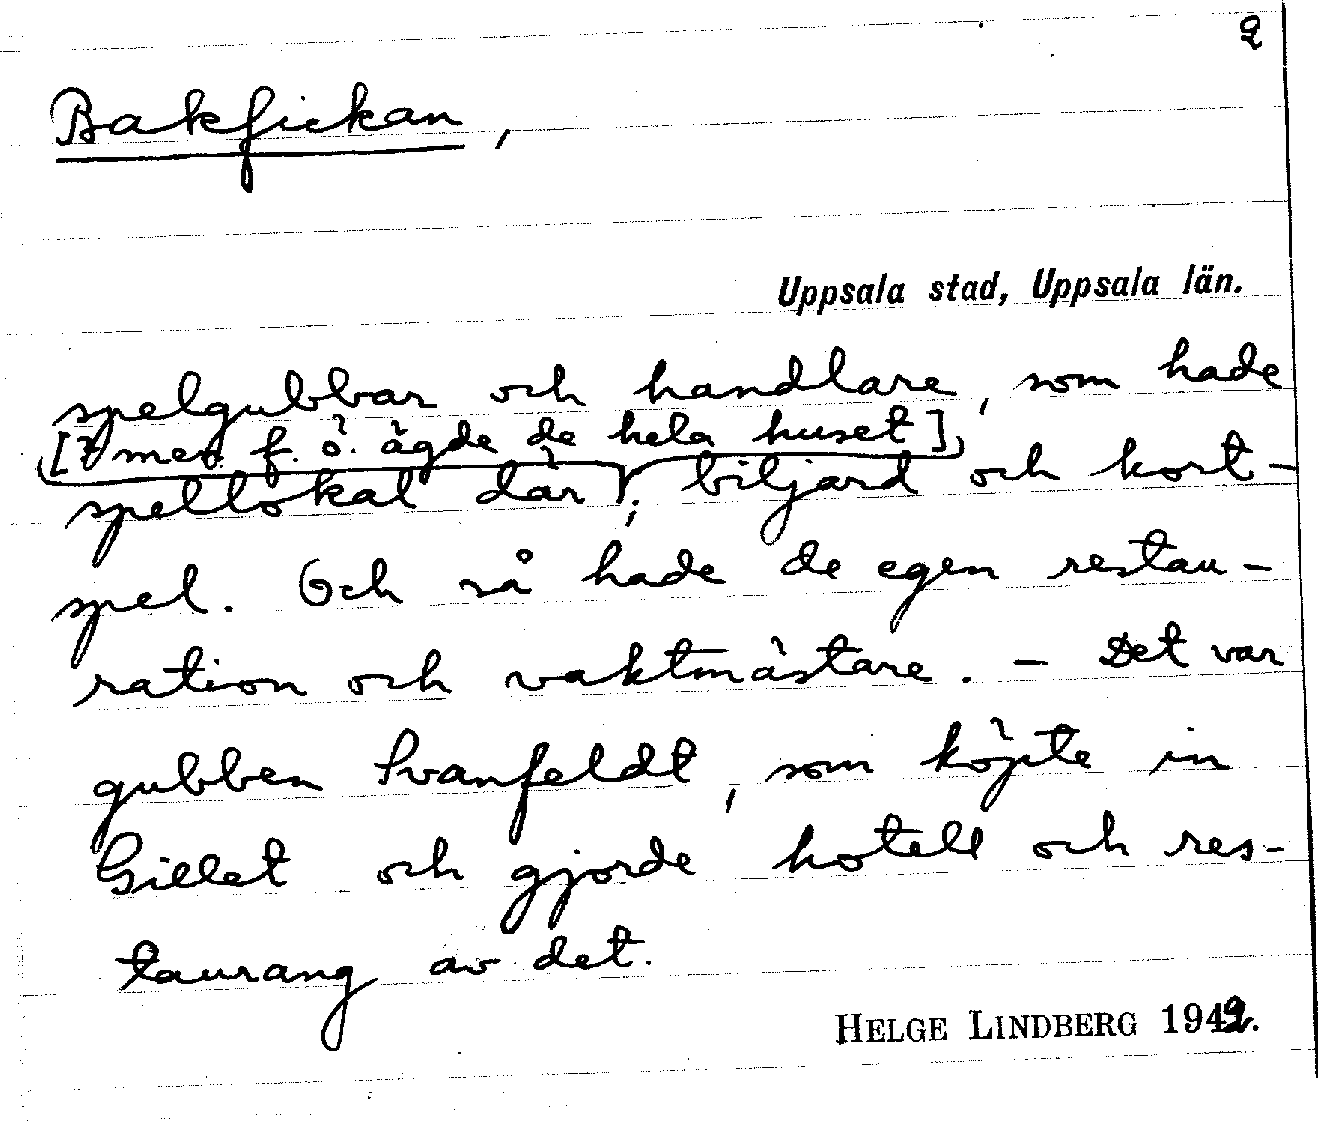 2
Bakfickan,
Uppsala stad, Uppsala län.
spelgubbar och handlare, som hade
[men f. ö. ägde de hela huset]
spellokal där; biljard och kort-
spel. Och så hade de egen restau-
ration och vaktmästare. – Det var
gubben Svanfeldt, som köpte in
Gillet och gjorde hotell och res-
taurang av det.
HELGE LINDBERG 1942.